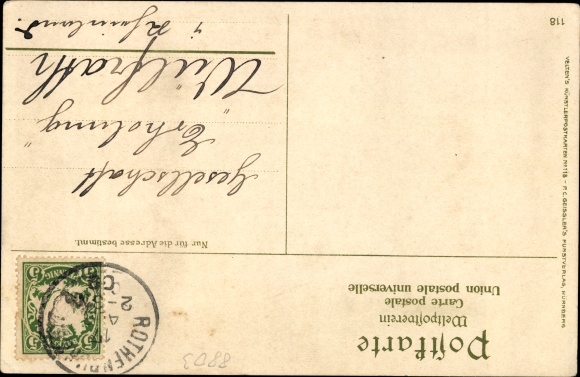 Postkarte
Weltpostverein
Carte postale
Union postale universelle
8803
ROTHENBU
Nur für die Adresse bestimmt.
Gesellschaft
"Erholung"
Wülfrath
i/ Rheinland.
VELTEN'S KÜNSTLERPOSTKARTEN Nr 118 - P. C. GEISSLER'S KUNSTVERLAG, NÜRNBERG
118